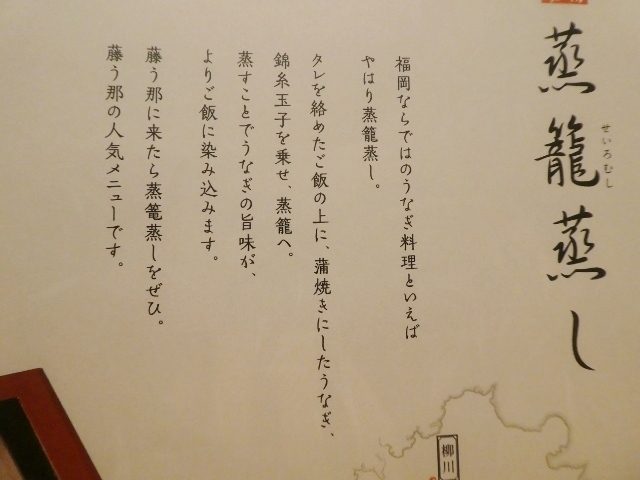 蒸籠蒸し
せいろむし
福岡ならではのうなぎ料理といえば
やはり蒸籠蒸し。
タレを絡めたご飯の上に、蒲焼きにしたうなぎ、
錦糸玉子を乗せ、蒸籠へ。
蒸すことでうなぎの旨味が、
よりご飯に染み込みます。
藤う那に来たら蒸篭蒸しをぜひ。
藤う那の人気メニューです。
柳川